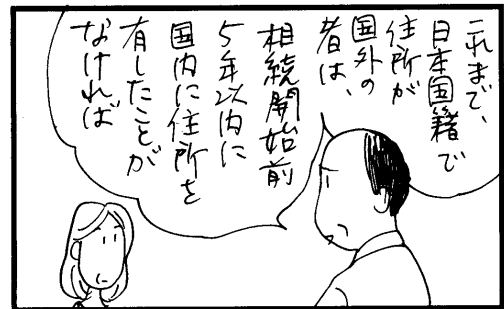 これまで、
日本国籍で
住所が
国外の
者は、
相続開始前
5年以内に
国内に住所を
有したことが
なければ